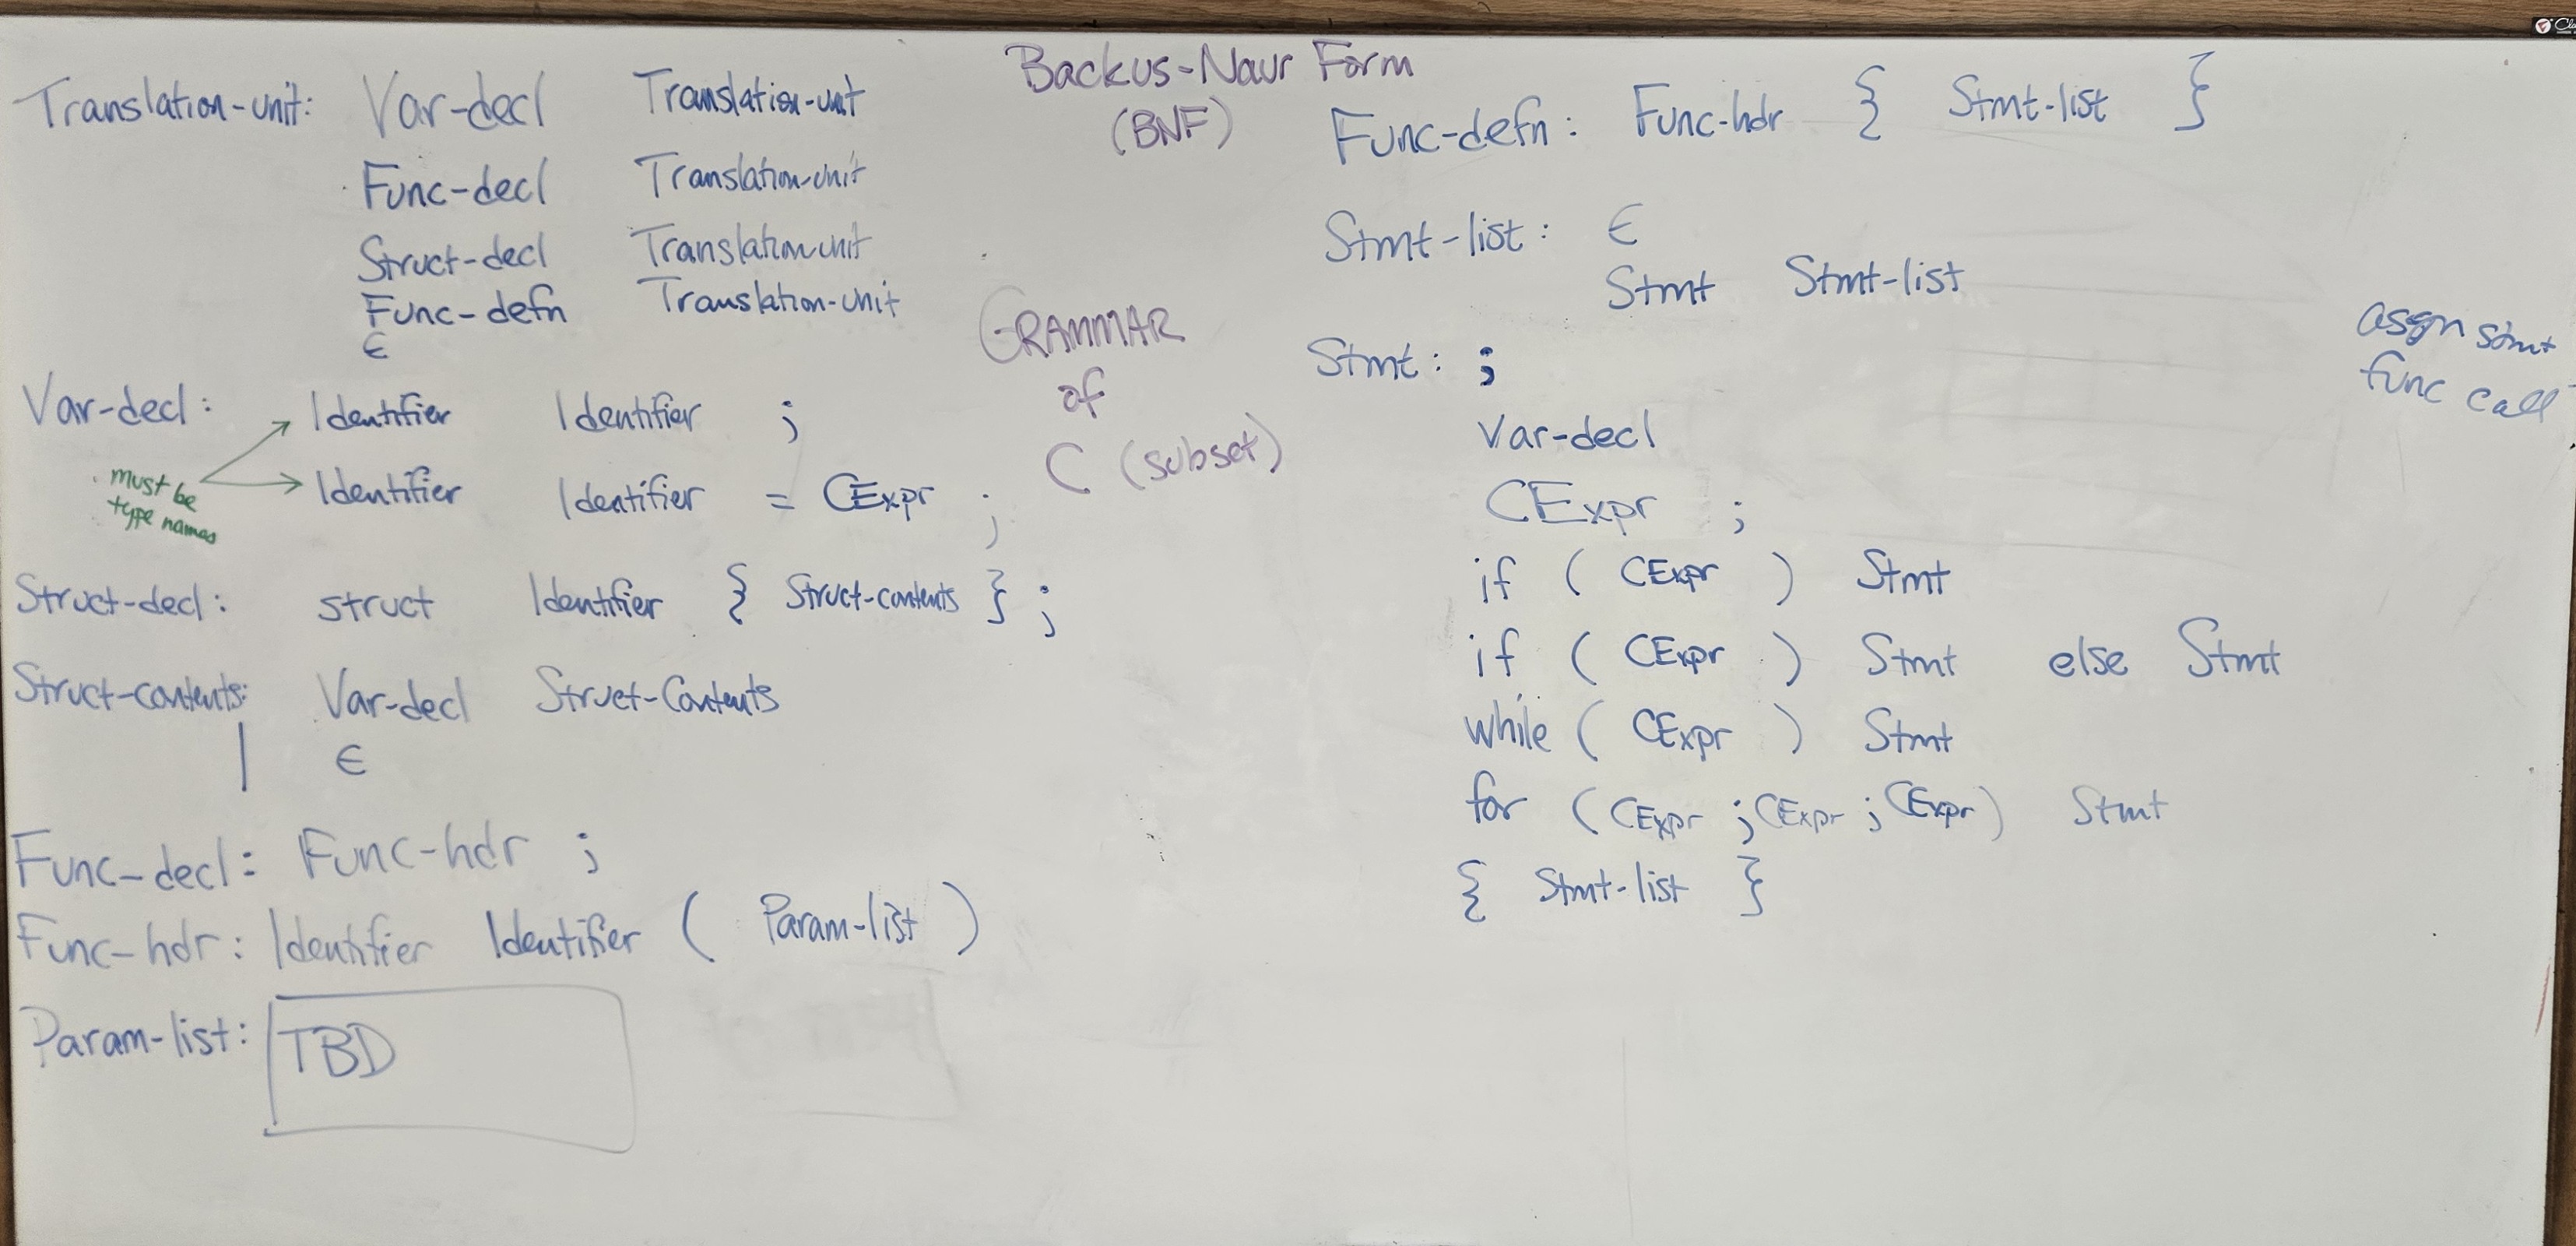 Backus-Naur Form
(BNF)
GRAMMAR
of
C (subset)
Translation-unit: Var-decl Translation-unit
Func-decl Translation-unit
Struct-decl Translation-unit
Func-defn Translation-unit
ε
Var-decl: Identifier Identifier ;
Identifier Identifier = CExpr ;
must be
type names
Struct-decl: struct Identifier { Struct-contents } ;
Struct-contents: Var-decl Struct-Contents
| ε
Func-decl: Func-hdr ;
Func-hdr: Identifier Identifier ( Param-list )
Param-list: TBD
Func-defn: Func-hdr { Stmt-list }
Stmt-list: ε
Stmt Stmt-list
Stmt: ;
Var-decl
CExpr ;
if ( CExpr ) Stmt
if ( CExpr ) Stmt else Stmt
while ( CExpr ) Stmt
for ( CExpr ; CExpr ; CExpr ) Stmt
{ Stmt-list }
assn stmt
func call